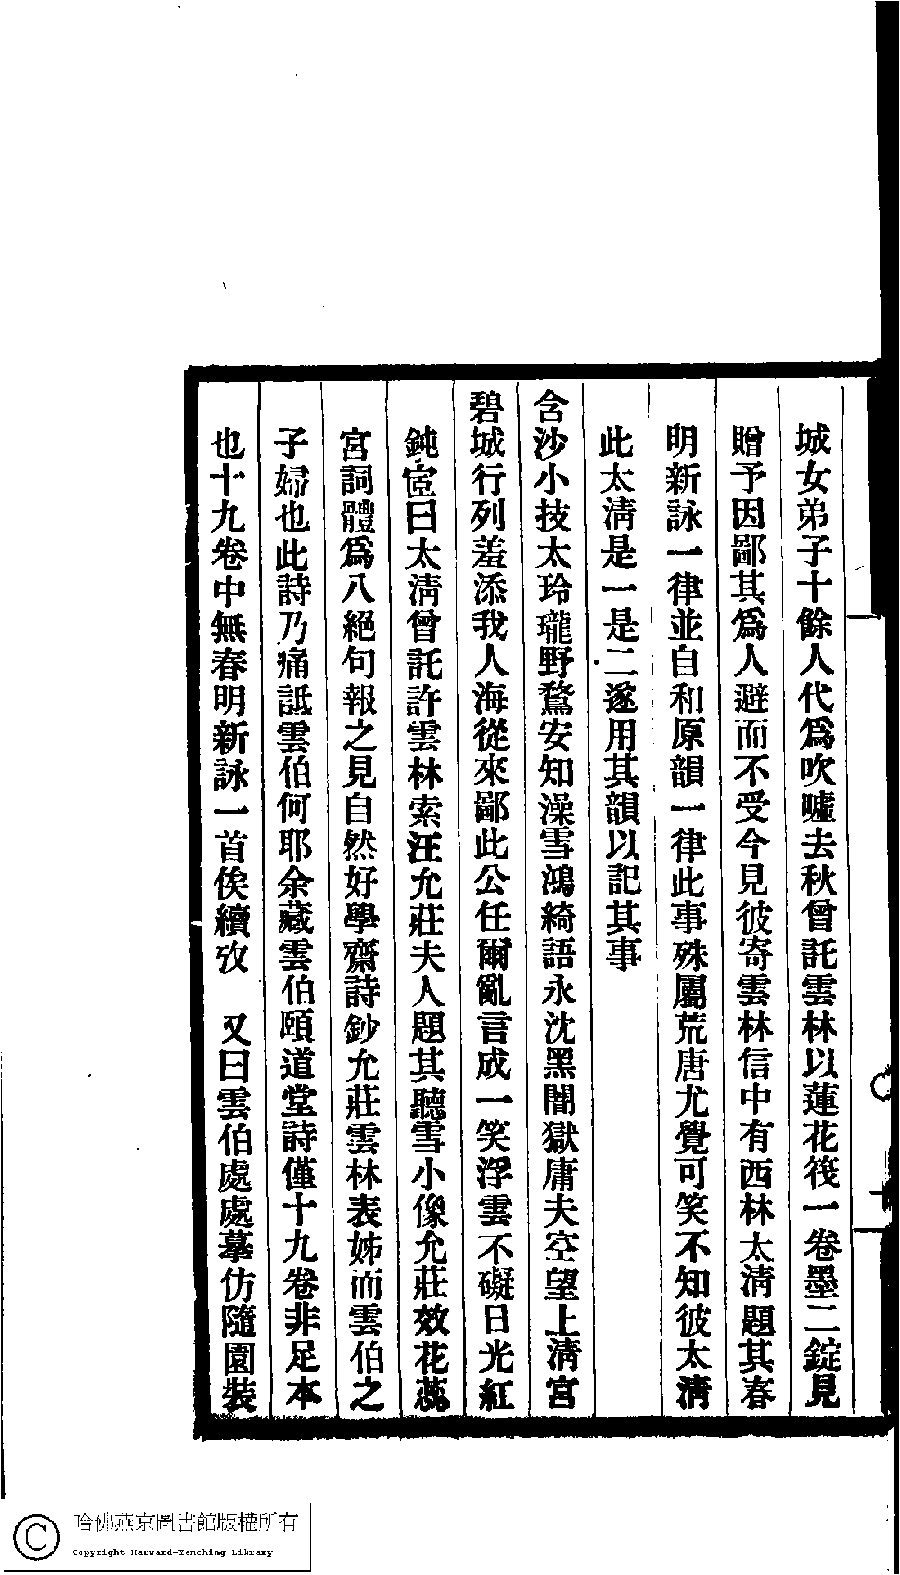 城女弟子十餘人代爲吹噓去秋曾託雲林以蓮花筏一卷墨二錠見
贈予因鄙其爲人避而不受今見彼寄雲林信中有西林太清題其春
明新詠一律並自和原韻一律此事殊屬荒唐尤覺可笑不知彼太清
此太清是一是二遂用其韻以記其事
含沙小技太玲瓏野鶩安知澡雪鴻綺語永沈黑闇獄庸夫空望上清宮
碧城行列羞添我人海從來鄙此公任爾亂言成一笑浮雲不礙日光紅
鈍宧曰太清曾託許雲林索汪允莊夫人題其聽雪小像允莊效花蕊
宮詞體爲八絕句報之見自然好學齋詩鈔允莊雲林表姊而雲伯之
子婦也此詩乃痛詆雲伯何耶余藏雲伯頤道堂詩僅十九卷非足本
也十九卷中無春明新詠一首俟續攷　又曰雲伯處處摹仿隨園裝
哈佛燕京圖書館版權所有
Copyright Harvard-Yenching Library